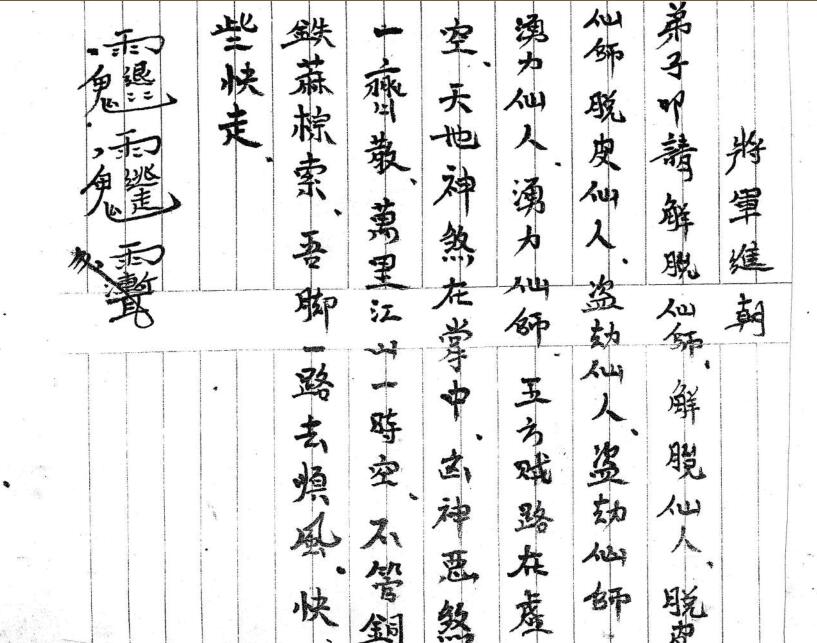 將軍進朝
弟子叩請解脫仙師、解脫仙人、脫皮
仙師脫皮仙人、盜劫仙人、盜劫仙師
湧力仙人、湧力仙師 五方賊路在虛
空、天地神煞在掌中、凶神惡煞
一齊散、萬里江山一時空、不管銅
鉄蔴棕索、吾脚一路去順風、快、
些快走、